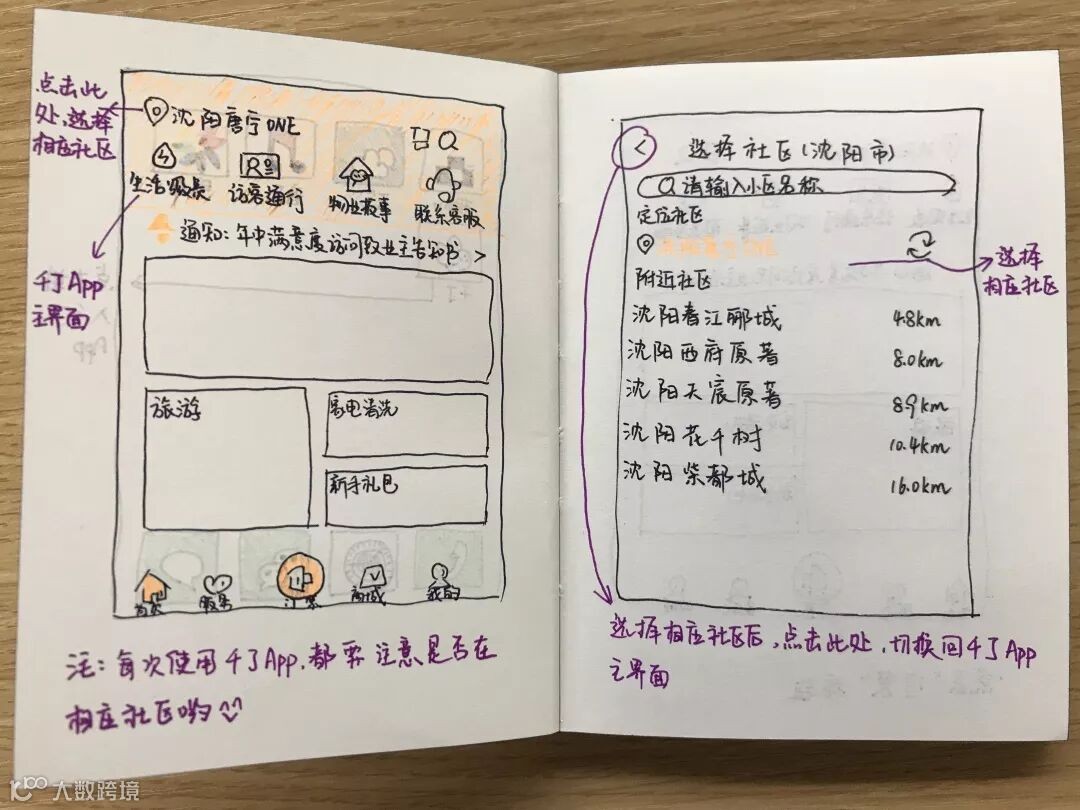 点击此
处,选择
相应社区
沈阳唐宁ONE
生活缴费
访客通行
物业报事
联系客服
通知:年中满意度访问致业主告知书 >
千丁App
主界面
旅游
家电清洗
新手礼包
首页
服务
商城
我的
注:每次使用千丁App,都要注意是否在
相应社区哟
选择社区(沈阳市)
请输入小区名称
定位社区
沈阳唐宁ONE
选择
相应社区
附近社区
沈阳春江郦城 4.8km
沈阳西府原著 8.0km
沈阳天宸原著 8.9km
沈阳花千树 10.4km
沈阳紫都城 16.0km
选择相应社区后,点击此处,切换回千丁App
主界面
大数跨境